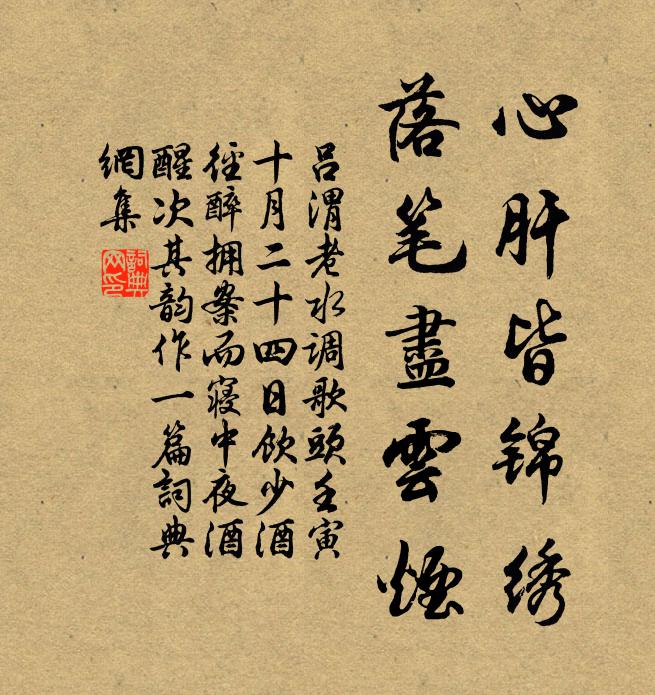 心肝皆锦绣
落笔盡雲煙
吕渭老水调歌頭壬寅
十月二十四日飲少酒
徑醉拥案而寢中夜酒
醒次其韵作一篇詞典
網集
詞典
网印